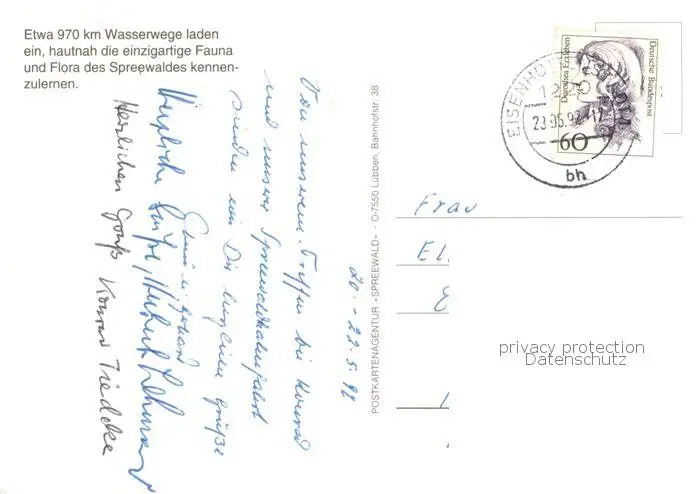 Etwa 970 km Wasserwege laden
ein, hautnah die einzigartige Fauna
und Flora des Spreewaldes kennen-
zulernen.
Von unserem Treffen bei Konrad
und unserer Spreewaldkahnfahrt
senden wir Dir herzliche Grüße
Herzliche Grüße, Hubert Lehmann
Herzlichen Gruß Konrad
20. - 22.5.92
POSTKARTENAGENTUR - SPREEWALD - · O-7550 Lübben, Bahnhofstr. 38
Dorothea Erxleben
Deutsche Bundespost
60
bh
Frau
El
privacy protection
Datenschutz